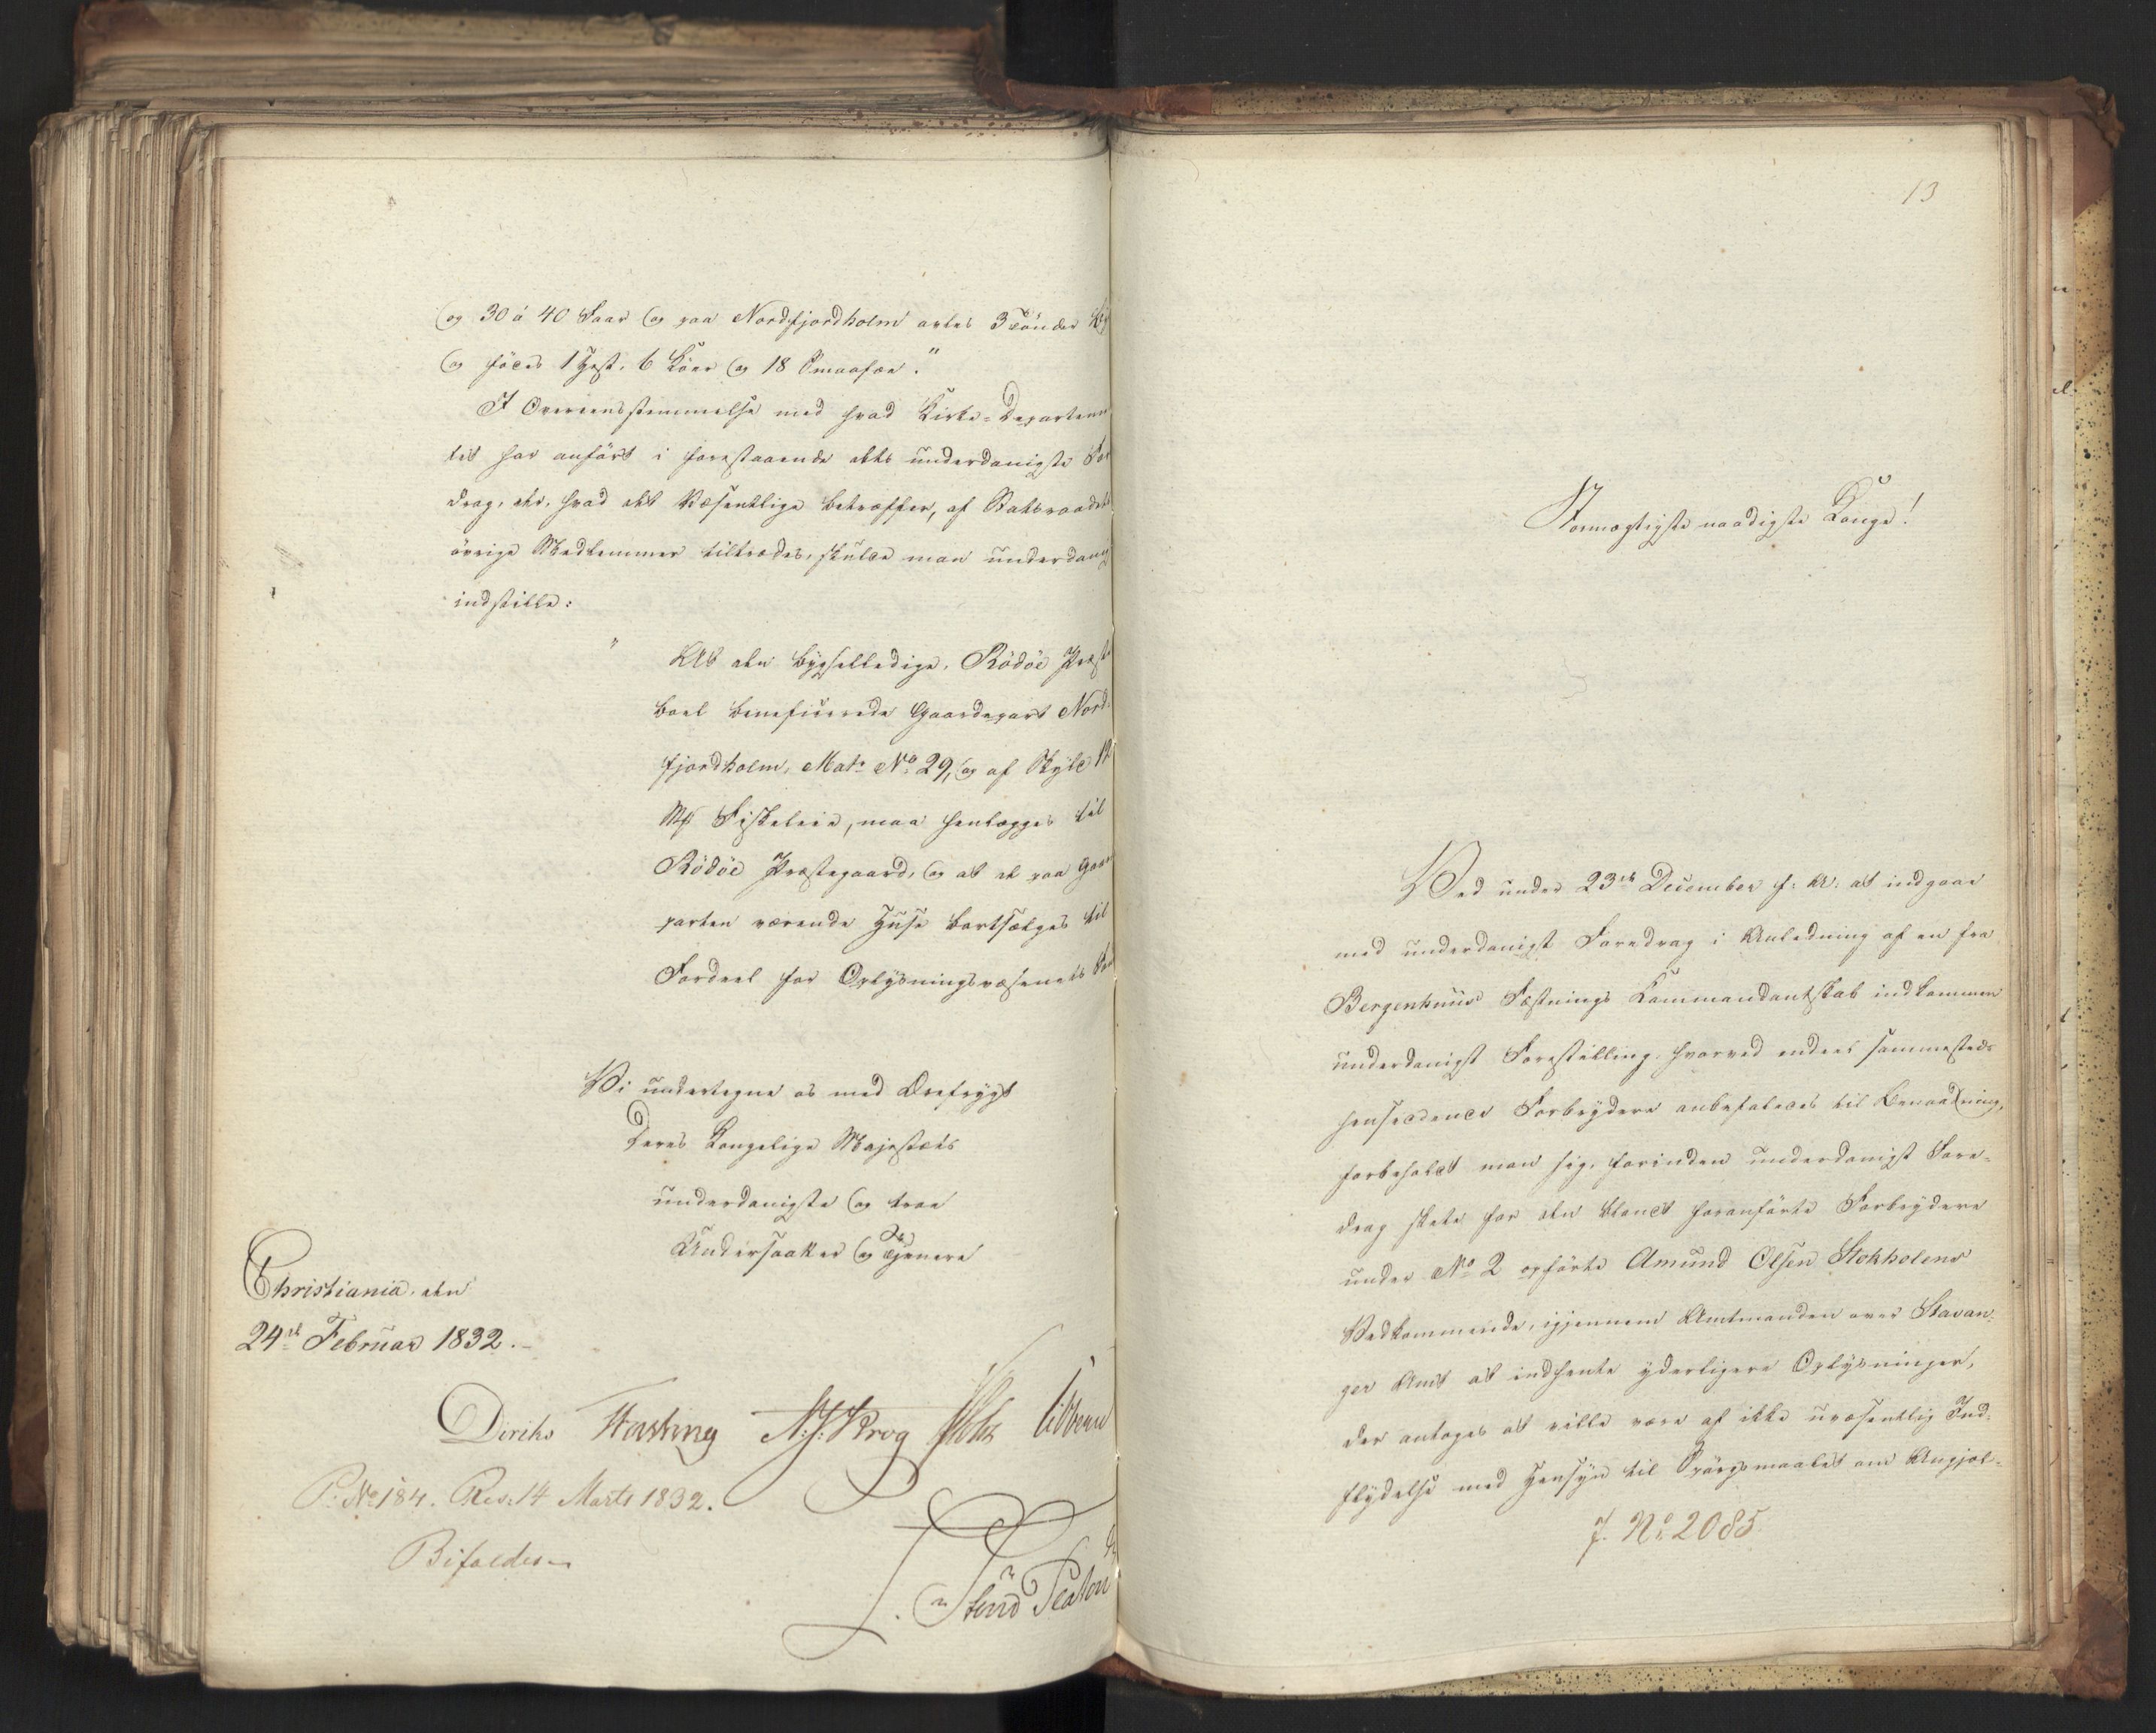 og 30 à 40 Faar og paa Nordfjordholm avles 3 Tönder
og föder 1 Hest, 6 Köer og 18 Smaafæ."
I Overeensstemmelse med hvad Kirke-Departem
tet har anfört i forestaaende dets underdanigste For
drag, der, hvad det Væsentlige betræffer, af Statsraadets
övrige Medlemmer tiltrædes, skulde man underdanig
indstille:
" At den bygselledige, Rödöe Præste
boel beneficerede Gaardepart Nord-
fjordholm, Matr No 29, og af Skyld 12
Mk Fiskeleie, maa henlægges til
Rödöe Præstegaard, og at de paa Gaard
parten værende Huse bortsælges til
Fordeel for Oplysningsvæsenets Fond
Vi undertegne os med Ærefrygt
Deres Kongelige Majestæts
underdanigste og troe
Undersaatter og Tjenere
Christiania, den
24de Februar 1832.-
Diriks Fasting N: J: Krog Vibe
P: No 184. Res: 14 Marts 1832.
Bifaldes
13
Stormægtigste naadigste Konge!
Ved under 23de December f: A: at indgaae
med underdanigst Foredrag i Anledning af en fra
Bergenhuus Fæstnings Kommandantskab indkommen
underdanigst Forestilling, hvorved endeel sammesteds
hensiddende Forbrydere anbefaledes til Benaadning,
forbeholdt man sig, forinden underdanigst Fore-
drag skete for den blandt foranförte Forbrydere
under No 2 opförte Amund Olsen Stokholens
Vedkommende, igjennem Amtmanden over Stavan-
ger Amt at indhente yderligere Oplysninger,
der antoges at ville være af ikke uvæsentlig Ind-
flydelse med Hensyn til Spörgsmaalet om Angjel-
J. No: 2085